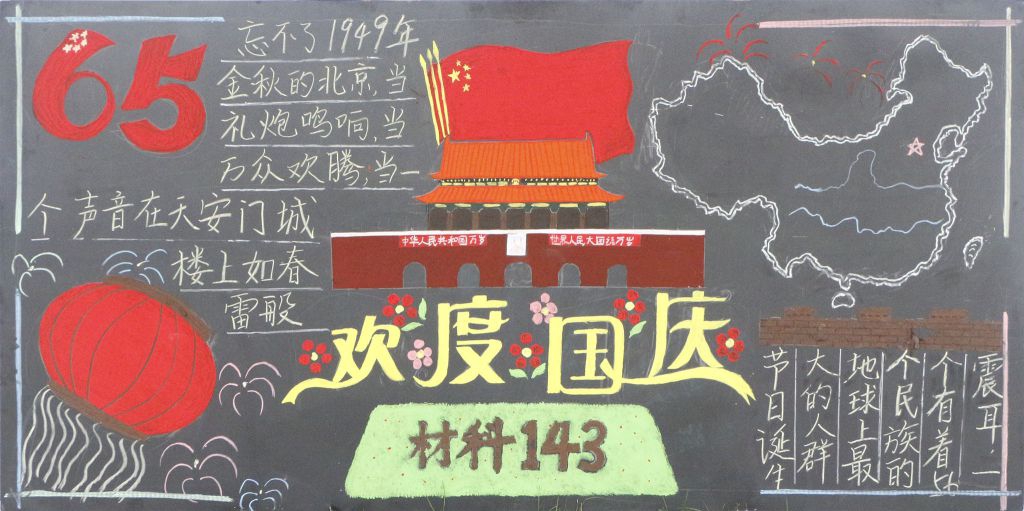 65
忘不了1949年
金秋的北京,当
礼炮鸣响,当
万众欢腾,当一
个声音在天安门城
楼上如春
雷般
中华人民共和国万岁
世界人民大团结万岁
欢度国庆
材料143
震耳,一
个有着
个民族的
地球上最
大的人群
节日诞生